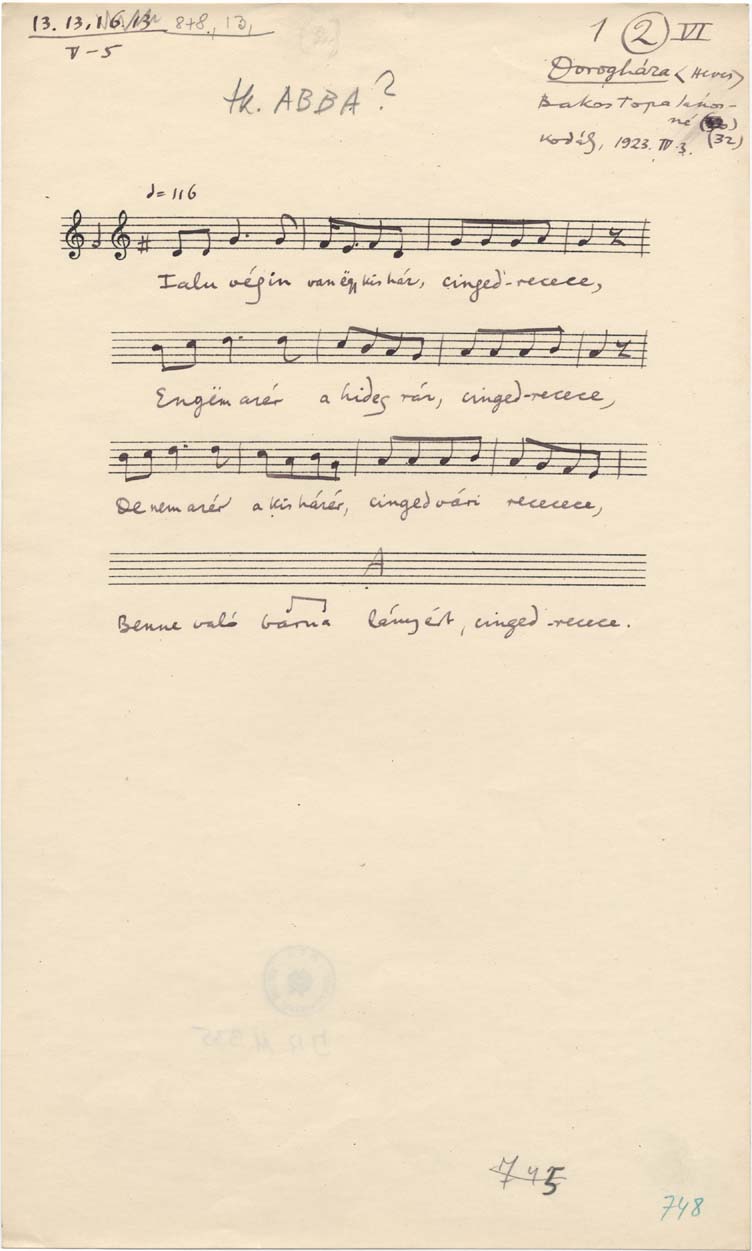 13. 13. 16. 13 8+8, 13,
V-5
1 2 VI
Dorogháza (Heves)
Bakos Topa János-
né
(32)
Kodály, 1923. IV. 3.
tk. ABBA?
= 116
Falu végin van ëgy kis ház, cinged-recece,
Engëm azér a hideg ráz, cinged-recece,
De nem azér a kis házér, cingedvári rececece,
A
Benne való barna lányért, cinged-recece.
745
748